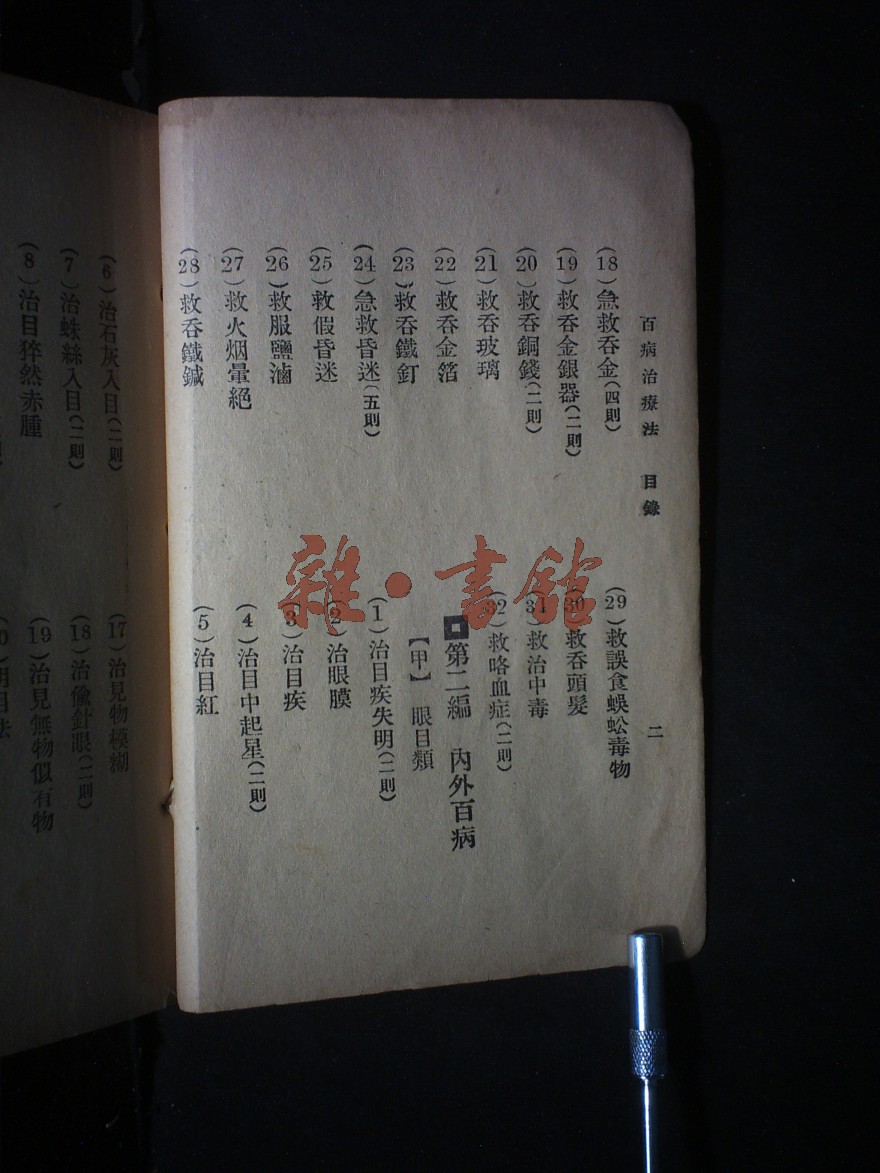 百病治療法 目錄
二
(18)急救吞金(四則)
(19)救吞金銀器(二則)
(20)救吞銅錢(二則)
(21)救吞玻璃
(22)救吞金箔
(23)救吞鐵釘
(24)急救昏迷(五則)
(25)救假昏迷
(26)救服鹽滷
(27)救火烟暈絕
(28)救吞鐵鍼
(29)救誤食蜈蚣毒物
(30)救吞頭髮
(31)救治中毒
(32)救咯血症(二則)
第二編 內外百病
【甲】 眼目類
(1)治目疾失明(二則)
(2)治眼膜
(3)治目疾
(4)治目中起星(二則)
(5)治目紅
(6)治石灰入目(二則)
(7)治蛛絲入目(二則)
(8)治目猝然赤腫
(17)治見物模糊
(18)治偸針眼(二則)
(19)治見無物似有物
明目法
雜·書館